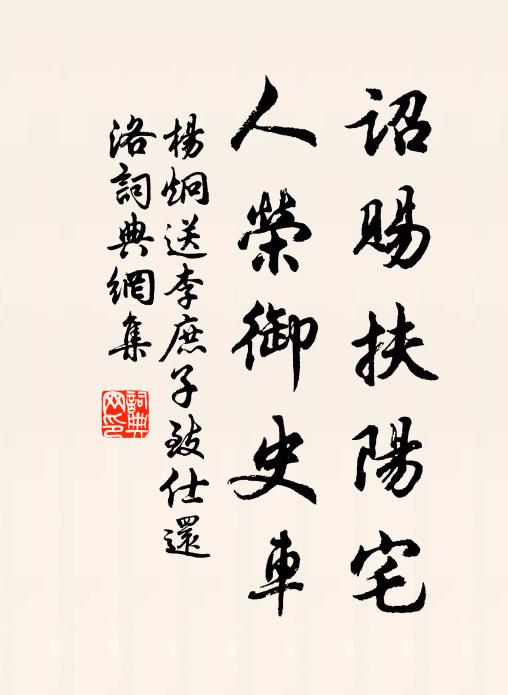 詔賜扶陽宅
人榮御史車
楊炯送李庶子致仕還
洛詞典網集
詞典
网印